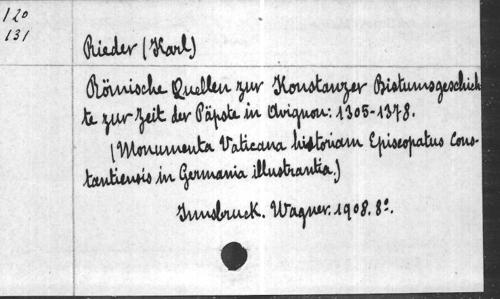 120
131
Rieder (Karl)
Römische Quellen zur Konstanzer Bistumsgeschich
te zur Zeit der Päpste in Avignon: 1305-1378.
(Monumenta Vaticana historiam Episcopatus Cons-
tantiensis in Germania illustrantia.)
Innsbruck. Wagner. 1908. 8º.